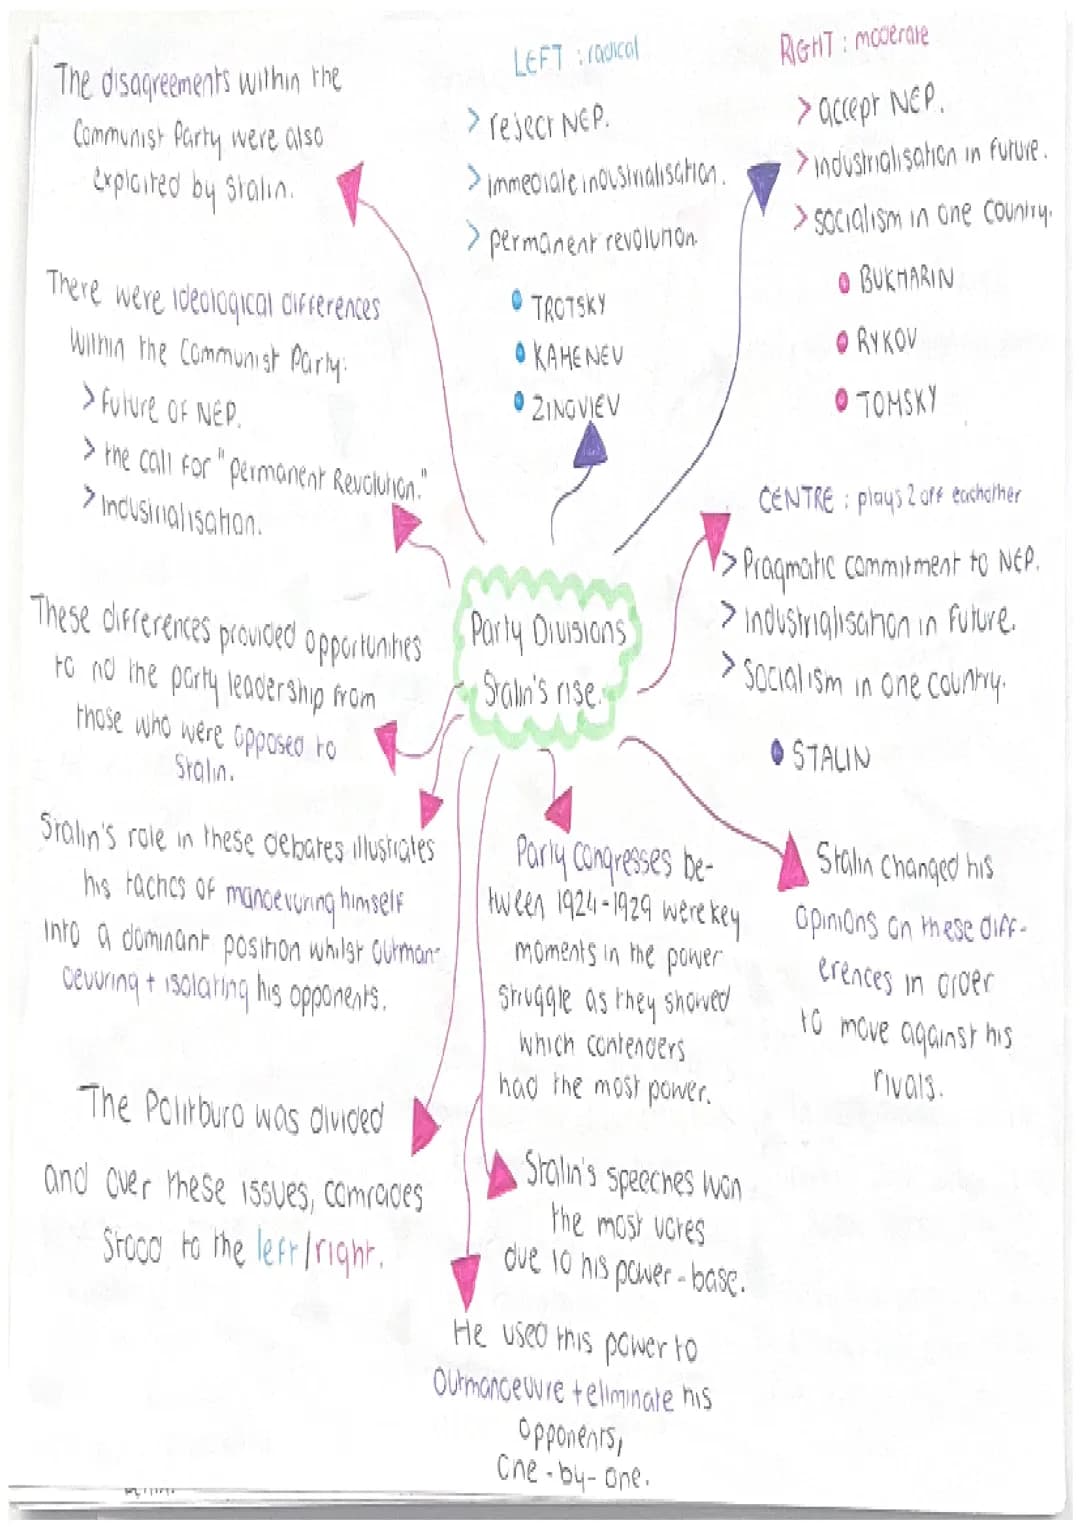 The disagreements within the
Communist Party were also
exploited by Stalin.
There were ideological differences
within the Communist Party:
> Future of NEP.
> the call for "permanent Revolution."
> Industrialisation.
These differences provided opportunities
to rid the party leadership from
those who were opposed to
Stalin.
Stalin's role in these debates illustrates
his tactics of manoevuring himself
into a dominant position whilst outman-
oevuring + isolating his opponents.
The Politburo was divided
and over these issues, comrades
stood to the left/right.
LEFT : radical
> reject NEP.
> immediate industrialisation.
> permanent revolution.
• TROTSKY
• KAMENEV
• ZINOVIEV
RIGHT : moderate
> accept NEP.
> industrialisation in future.
> socialism in one country.
• BUKHARIN
• RYKOV
• TOMSKY
CENTRE : plays 2 off eachother
> Pragmatic commitment to NEP.
> industrialisation in future.
> socialism in one country.
• STALIN
Party Divisions
Stalin's rise.
Party Congresses be-
tween 1924-1929 were key
moments in the power
struggle as they showed
which contenders
had the most power.
Stalin changed his
opinions on these diff-
erences in order
to move against his
rivals.
Stalin's speeches won
the most votes
due to his power-base.
He used this power to
outmanoeuvre + eliminate his
opponents,
one-by-one.